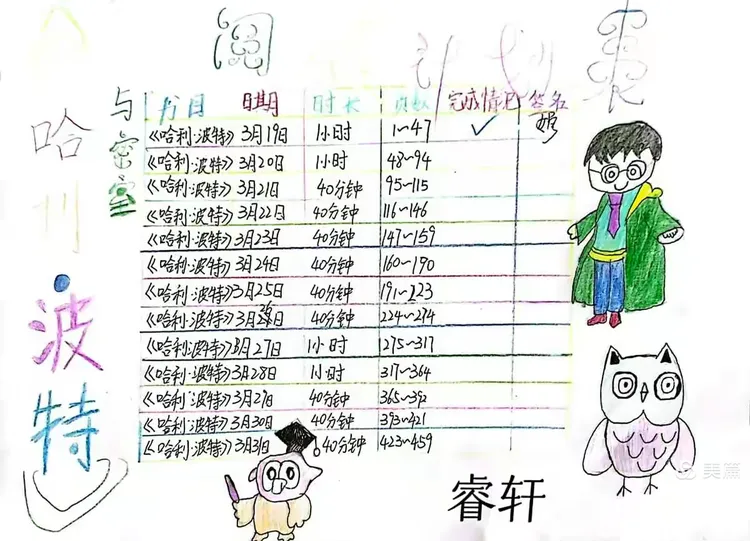 阅 计划表
哈利·波特
与密室
书目 日期 时长 页数 完成情况 签名
《哈利·波特》 3月19日 1小时 1~47 ✓
《哈利·波特》 3月20日 1小时 48~94
《哈利·波特》 3月21日 40分钟 95~115
《哈利·波特》 3月22日 40分钟 116~146
《哈利·波特》 3月23日 40分钟 147~159
《哈利·波特》 3月24日 40分钟 160~190
《哈利·波特》 3月25日 40分钟 191~223
《哈利·波特》 3月26日 40分钟 224~274
《哈利·波特》 3月27日 1小时 275~317
《哈利·波特》 3月28日 1小时 317~364
《哈利·波特》 3月29日 40分钟 365~392
《哈利·波特》 3月30日 40分钟 393~421
《哈利·波特》 3月31日 40分钟 423~459
睿轩
美篇